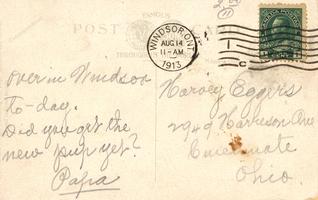 FAMOUS
POST
THROUGHOUT
WINDSOR, ONT.
AUG 14
11-AM
1913
over in Windsor
To-day.
Did you get the
new pup yet?
Papa
Harvey Eggers
2949 Harrison Ave
Cincinnati
Ohio.